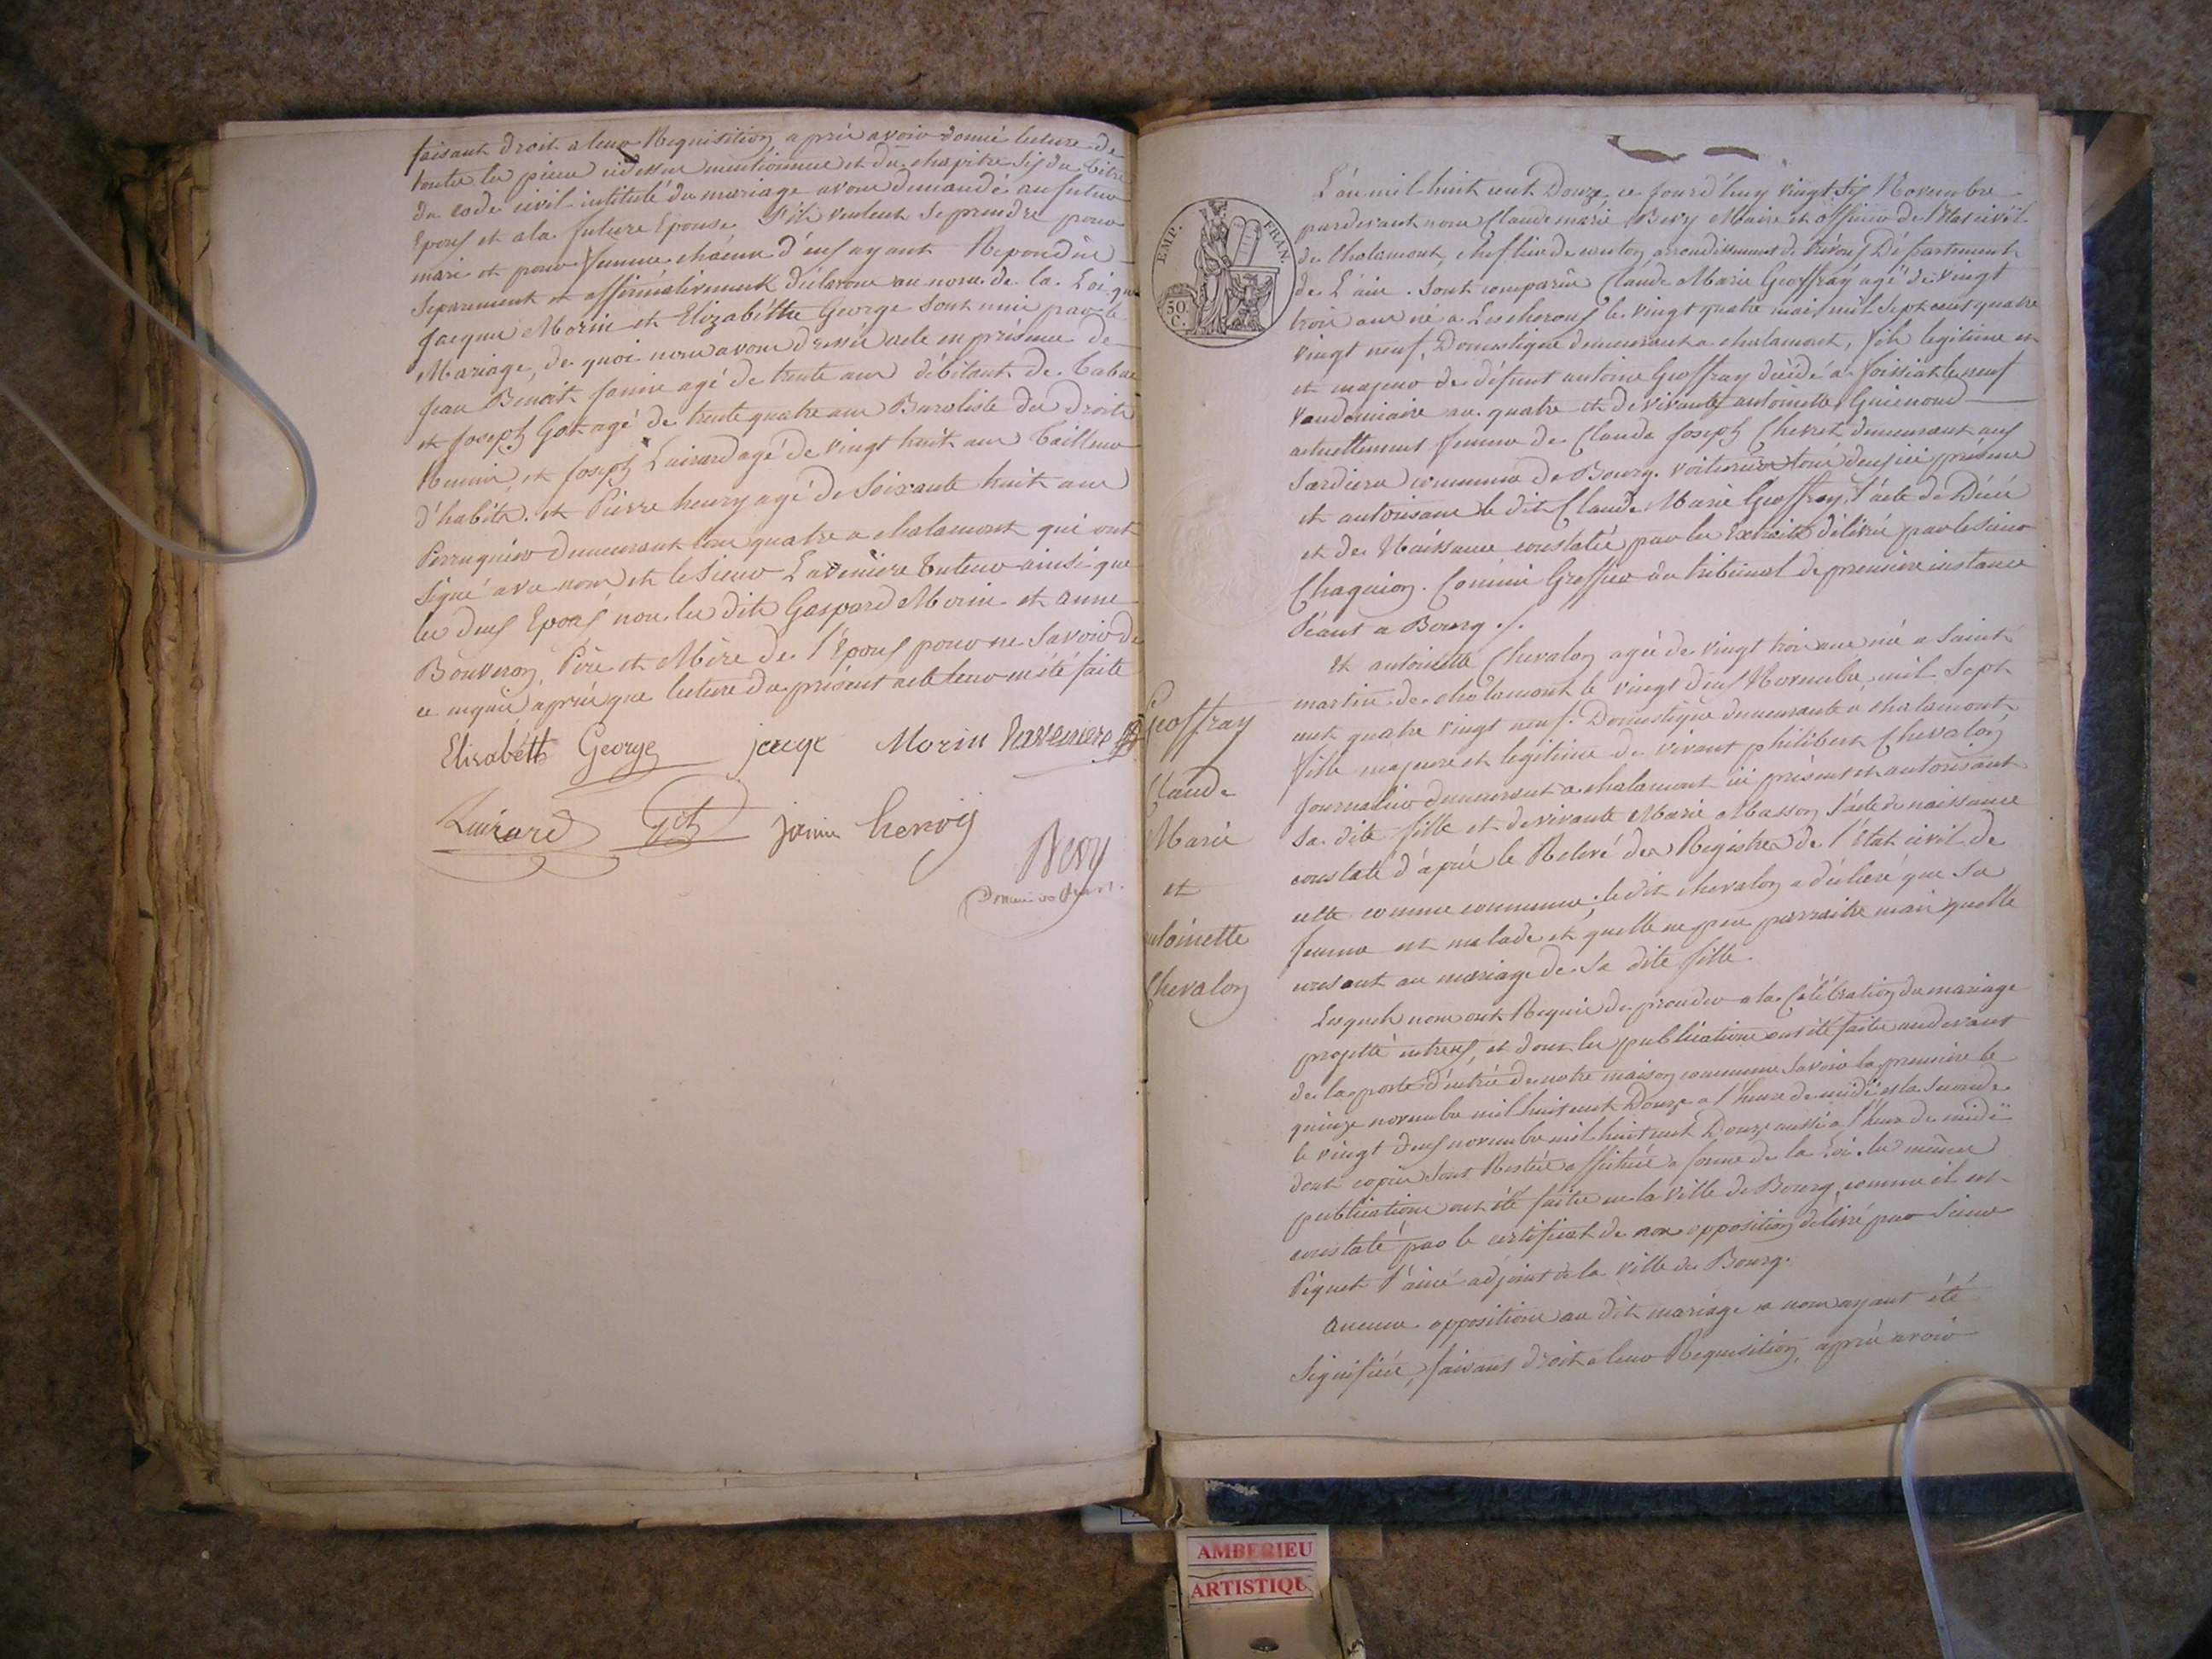 faisant droit a leur Requisition, après avoir donné lecture de
toutes les pieces ci dessus mentionnees et du chapitre six du titre
du code civil intitulé du mariage avons demandé au futur
Epoux et a la future Epouse s'ils veulent se prendre pour
mari et pour femme chacun d'eux ayant Repondûs
Separement et affirmativement déclarons au nom de la Loi que
Jacques Morin et Elizabéthe George sont unis par le
Mariage, de quoi nous avons dressé acte en présence de
Jean Benoit Janin agé de trente ans débitant de tabac
et Joseph Got agé de trente quatre ans Buraliste des Droits
Reunis, et Joseph Luirard agé de vingt huit ans Tailleur
d'habits. et Pierre henry agé de Soixante huit ans
Perruquier demeurant tous quatre a chalamont qui ont
signé avec nous et le sieur Laveniere tuteur ainsi que
les deux Epoux non les dits Gaspard Morin et anne
Bouveron, Père et Mère de l'Epoux pour ne savoir de
ce enquis après que lecture du présent acte leur en été faite
Elisabéth George jacqe Morin Laveniere
Luirard Got janin henry
Bery
L'an mil huit cent Douze ce jourd'huy vingt six Novembre
pardevant nous Claude marie Bery Maire et officier de l'Etat civil
de Chalamont, chef lieu de canton, arrondissement de trévoux Département
de L'ain. Sont comparûs Claude Marie Geoffray agé de vingt
trois ans né a Lescheroux le vingt quatre mai mil sept cent quatre
vingt neuf, Domestique demeurant a chalamont, fils legitime
et majeur de défunt antoine Geoffray décédé a foissiat le neuf
Vendemiaire an quatre et de vivante antoinette Guienond
actuellement femme de Claude Joseph Chevret demeurant aux
Sardieres commune de Bourg. voiturier tous deux ici présens
et autorisans le dit Claude Marie Geoffray, l'acte de Décès
et de Naissance constatés par les Extraits délivrés par le sieur
Chaguion. Commis Greffier du tribunal de première instance
séant a Bourg ./.
Et antoinette Chevalon agée de vingt trois ans née a Saint
martin de chalamont le vingt deux Novembre mil sept
cent quatre vingt neuf. Domestique demeurante a chalamont
fille majeure et legitime de vivant philibert Chevalon
Journalier demeurant a chalamont ici présent et autorisant
sa dite fille et de vivante Marie Masson, l'acte de naissance
constaté d'après le Relevé des Registres de l'état civil de
cette comme commune, le dit chevalon a déclaré que sa
femme est malade et quelle ne peu parraitre mais quelle
consent au mariage de sa dite fille.
Lesquels nous ont Requis de proceder a la Célébration du mariage
projetté entreux, et dont les publications ont été faites audevant
de la porte d'entrée de notre maison commune Savoir la premiere le
quinze novembre mil huit cent Douze a l'heure de midi et la seconde
le vingt deux novembre mil huit cent Douze aussi a l'heure de midi
dont copies sont Restées affichées a forme de la Loi. les mêmes
publications ont été faites en la ville de Bourg comme il est
constaté par le certificat de non opposition délivré par sieur
Piquet l'ainé adjoint de la ville de Bourg.
Aucune opposition au dit mariage ne nous ayant été
signifiée, faisant droit a leur Requisition, après avoir
Geoffray
Claude
Marie
et
antoinette
Chevalon
EMP. FRAN.
50
C.
AMBERIEU
ARTISTIQU